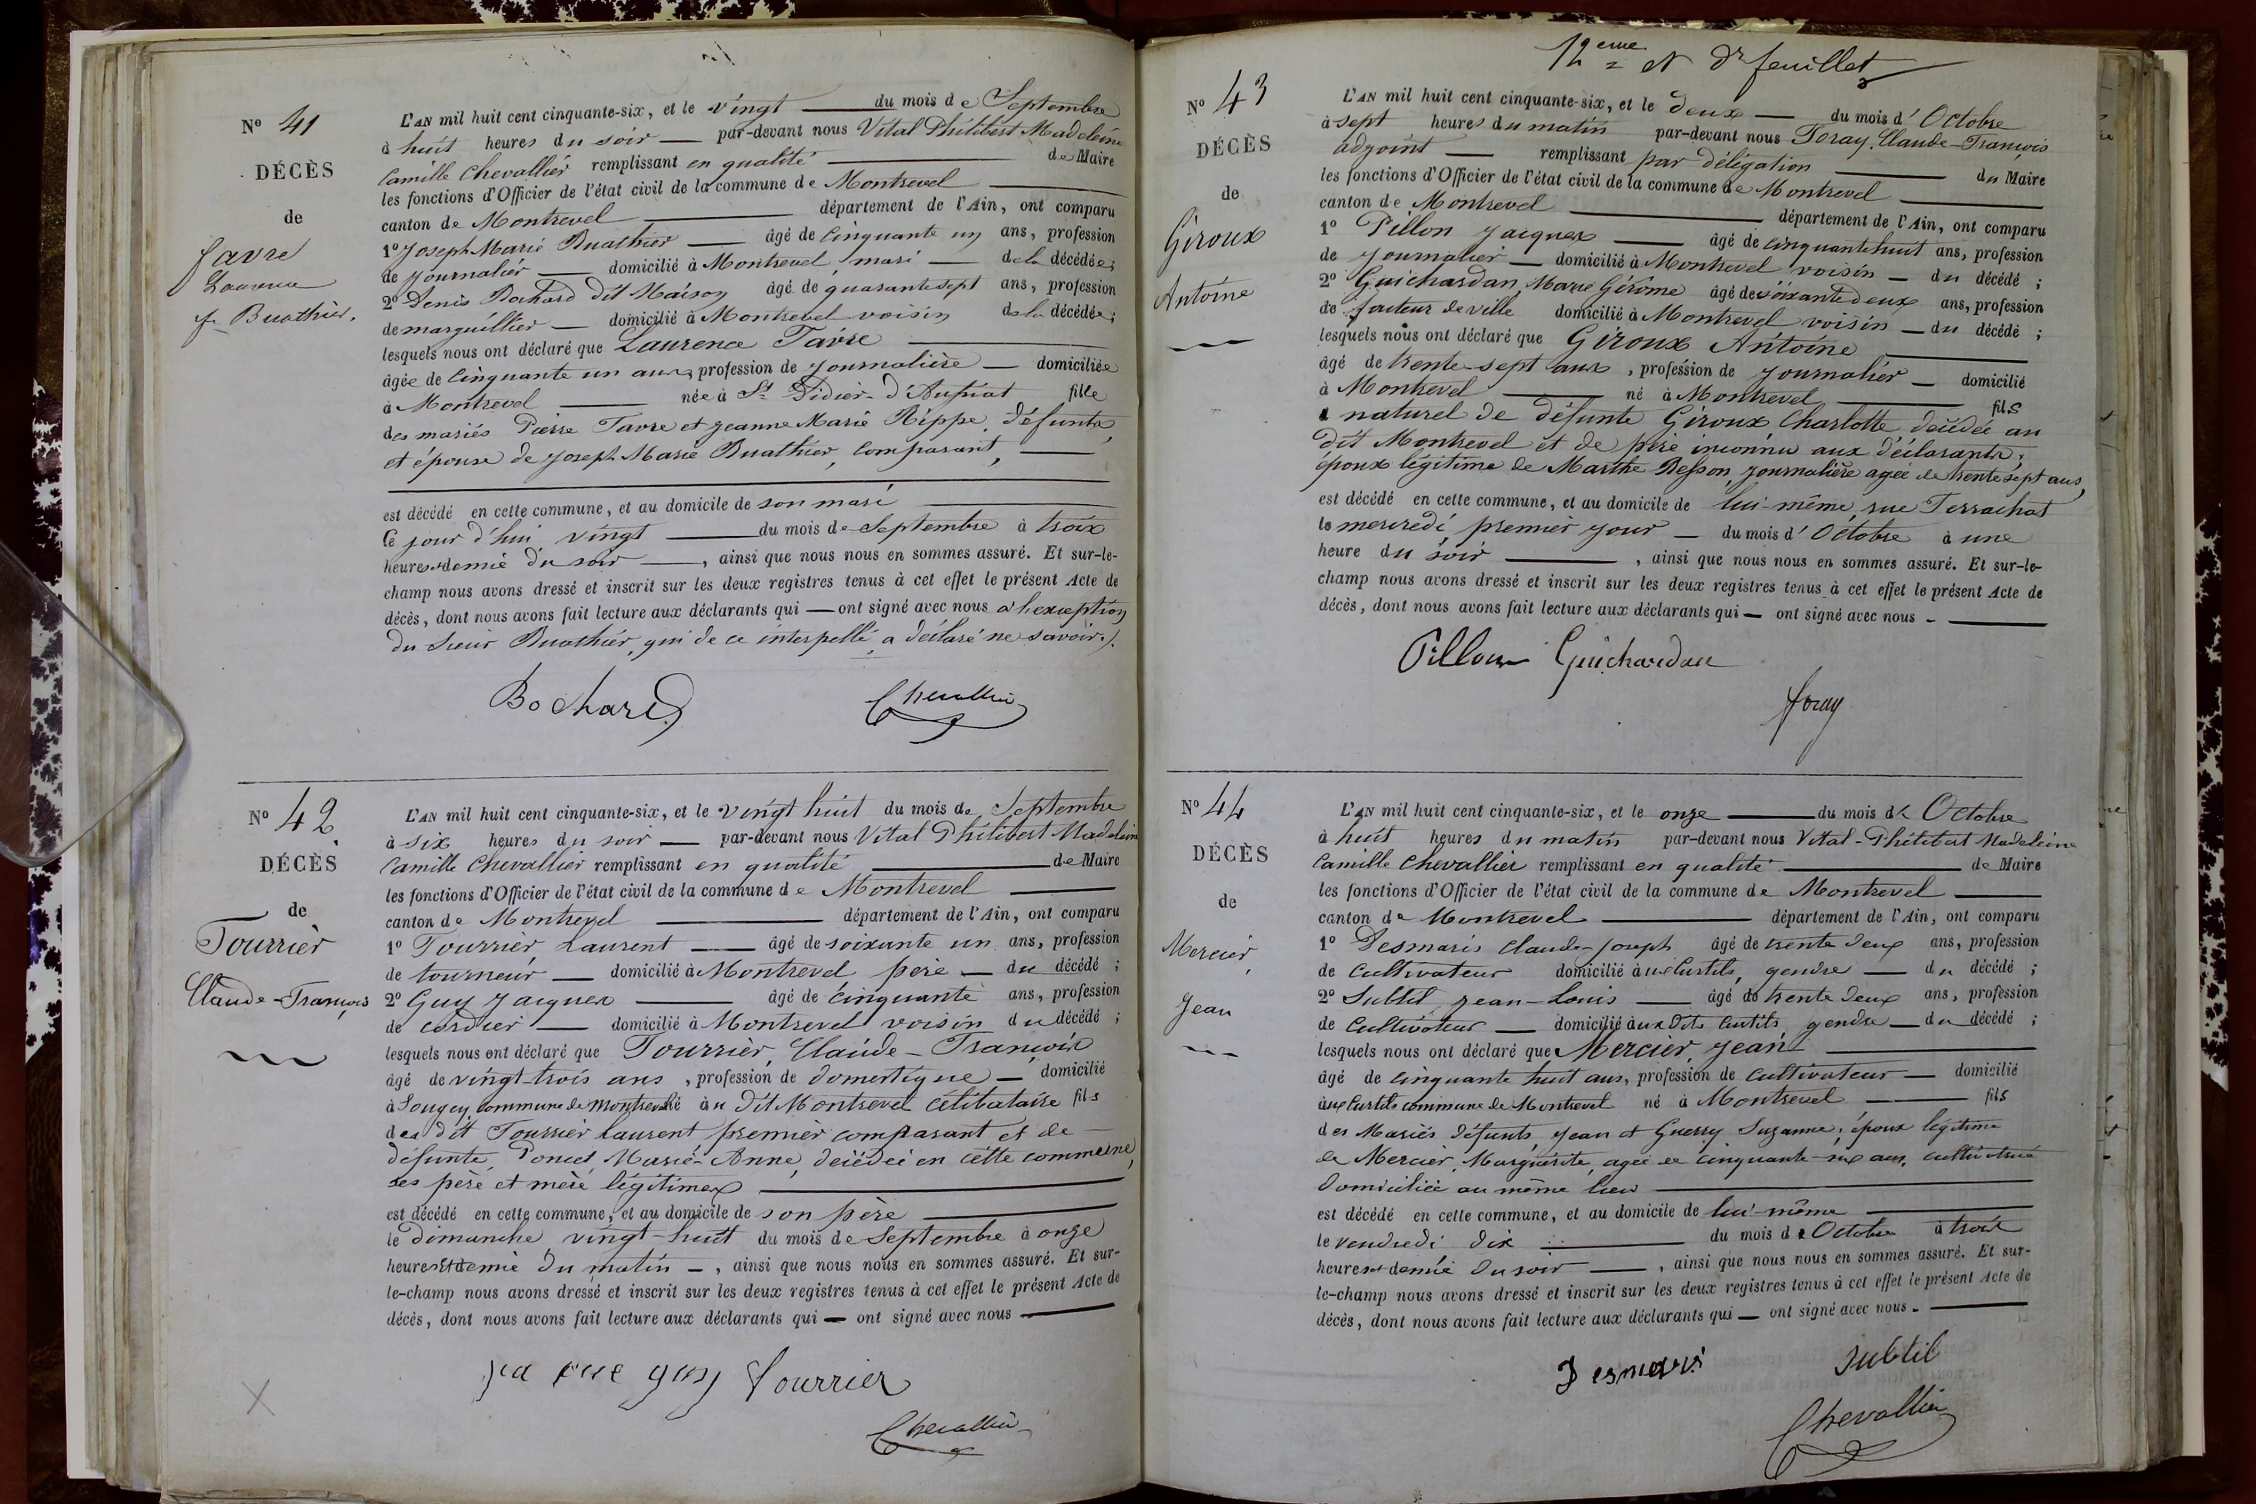 Nº 41
DÉCÈS
de
Favre
Laurence
f. Buathier.
L'AN mil huit cent cinquante-six, et le vingt du mois de Septembre
à huit heures du soir par-devant nous Vital Philibert Madeleine
Camille Chevallier remplissant en qualité de Maire
les fonctions d'Officier de l'état civil de la commune de Montrevel
canton de Montrevel département de l'Ain, ont comparu
1º Joseph Marie Buathier âgé de cinquante un ans, profession
de journalier domicilié à Montrevel, mari de la décédée;
2º Denis Bochard dit Maison âgé de quarante sept ans, profession
de marguillier domicilié à Montrevel voisin de la décédée;
lesquels nous ont déclaré que Laurence Favre
âgée de cinquante un ans, profession de journalière domiciliée
à Montrevel née à St Didier-d'Aussiat fille
des mariés Pierre Favre et Jeanne Marie Rippe, défunts,
et épouse de Joseph Marie Buathier, comparant,
est décédé en cette commune, et au domicile de son mari
Ce jour d'hui vingt du mois de Septembre à trois
heures et demie du soir, ainsi que nous nous en sommes assuré. Et sur-le-
champ nous avons dressé et inscrit sur les deux registres tenus à cet effet le présent Acte de
décès, dont nous avons fait lecture aux déclarants qui — ont signé avec nous à l'exception
du sieur Buathier, qui de ce interpellé, a déclaré ne savoir./.
Bochard Chevallier
Nº 42
DÉCÈS
de
Fourrier
Claude-François
L'AN mil huit cent cinquante-six, et le vingt huit du mois de Septembre
à six heures du soir par-devant nous Vital Philibert Madelein
Camille Chevallier remplissant en qualité de Maire
les fonctions d'Officier de l'état civil de la commune de Montrevel
canton de Montrevel département de l'Ain, ont comparu
1º Fourrier, Laurent âgé de soixante un ans, profession
de tourneur domicilié à Montrevel père du décédé;
2º Guy Jacques âgé de cinquante ans, profession
de cordier domicilié à Montrevel voisin du décédé;
lesquels nous ont déclaré que Fourrier, Claude-François
âgé de vingt-trois ans, profession de domestique domicilié
à Sougey, commune de Montrevel né au dit Montrevel célibataire fils
des dit Fourrier Laurent premier comparant et de
défunte, Poncet Marie-Anne, décédée en cette commune,
ses père et mère légitimes
est décédé en cette commune, et au domicile de son père
le dimanche vingt-huit du mois de Septembre à onze
heures et demie du matin, ainsi que nous nous en sommes assuré. Et sur-
le-champ nous avons dressé et inscrit sur les deux registres tenus à cet effet le présent Acte de
décès, dont nous avons fait lecture aux déclarants qui — ont signé avec nous
guy fourrier
Chevallier
12eme et Dr feuillet
Nº 43
DÉCÈS
de
Giroux
Antoine
L'AN mil huit cent cinquante-six, et le deux du mois d'Octobre
à sept heures du matin par-devant nous Foray, Claude-François
adjoint remplissant par délégation du Maire
les fonctions d'Officier de l'état civil de la commune de Montrevel
canton de Montrevel département de l'Ain, ont comparu
1º Pillon Jacques âgé de cinquante huit ans, profession
de journalier domicilié à Montrevel voisin du décédé;
2º Guichardan, Marie Gérôme âgé de soixante deux ans, profession
de facteur de ville domicilié à Montrevel voisin du décédé;
lesquels nous ont déclaré que Giroux Antoine
âgé de trente-sept ans, profession de journalier domicilié
à Montrevel né à Montrevel fils
naturel de défunte Giroux Charlotte décédée au
dit Montrevel et de père inconnu aux déclarants;
époux légitime de Marthe Besson, journalière agée de trente sept ans,
est décédé en cette commune, et au domicile de lui-même, rue Terrachat
le mercredi, premier jour du mois d'Octobre à une
heure du soir, ainsi que nous nous en sommes assuré. Et sur-le-
champ nous avons dressé et inscrit sur les deux registres tenus à cet effet le présent Acte de
décès, dont nous avons fait lecture aux déclarants qui — ont signé avec nous
Pillon Guichardan
foray
Nº 44
DÉCÈS
de
Mercier,
Jean
L'AN mil huit cent cinquante-six, et le onze du mois de Octobre
à huit heures du matin par-devant nous Vital-Philibert Madeleine
Camille Chevallier remplissant en qualité de Maire
les fonctions d'Officier de l'état civil de la commune de Montrevel
canton de Montrevel département de l'Ain, ont comparu
1º Desmaris Claude-Joseph âgé de trente deux ans, profession
de cultivateur domicilié aux Curtils, gendre du décédé;
2º Subtil Jean-Louis âgé de trente deux ans, profession
de cultivateur domicilié aux dits Curtils, gendre du décédé;
lesquels nous ont déclaré que Mercier, Jean
âgé de cinquante huit ans, profession de cultivateur domicilié
aux Curtils commune de Montrevel né à Montrevel fils
des Mariés défunts, Jean et Guerry Suzanne; époux légitime
de Mercier, Marguerite, agée de cinquante-six ans, cultivatrice
domiciliée au même lieu
est décédé en cette commune, et au domicile de lui-même
le vendredi dix du mois de Octobre à trois
heures et demie du soir, ainsi que nous nous en sommes assuré. Et sur-
le-champ nous avons dressé et inscrit sur les deux registres tenus à cet effet le présent Acte de
décès, dont nous avons fait lecture aux déclarants qui — ont signé avec nous
Desmaris Subtil
Chevallier